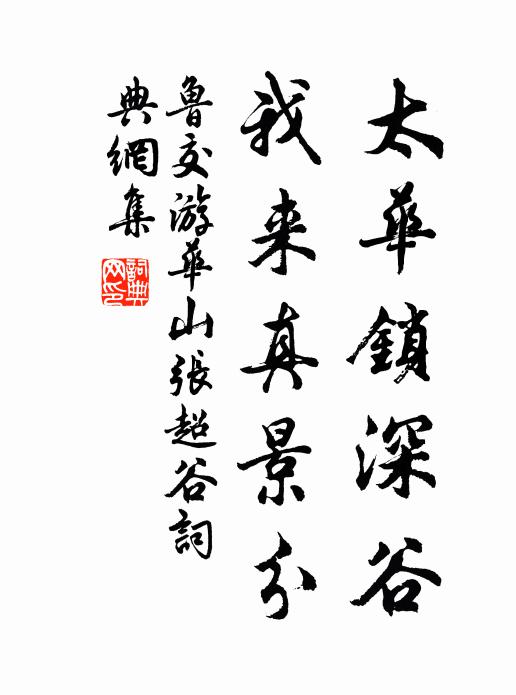 太華鎖深谷
我来真景分
魯交游華山張超谷詞
典網集
詞典网印